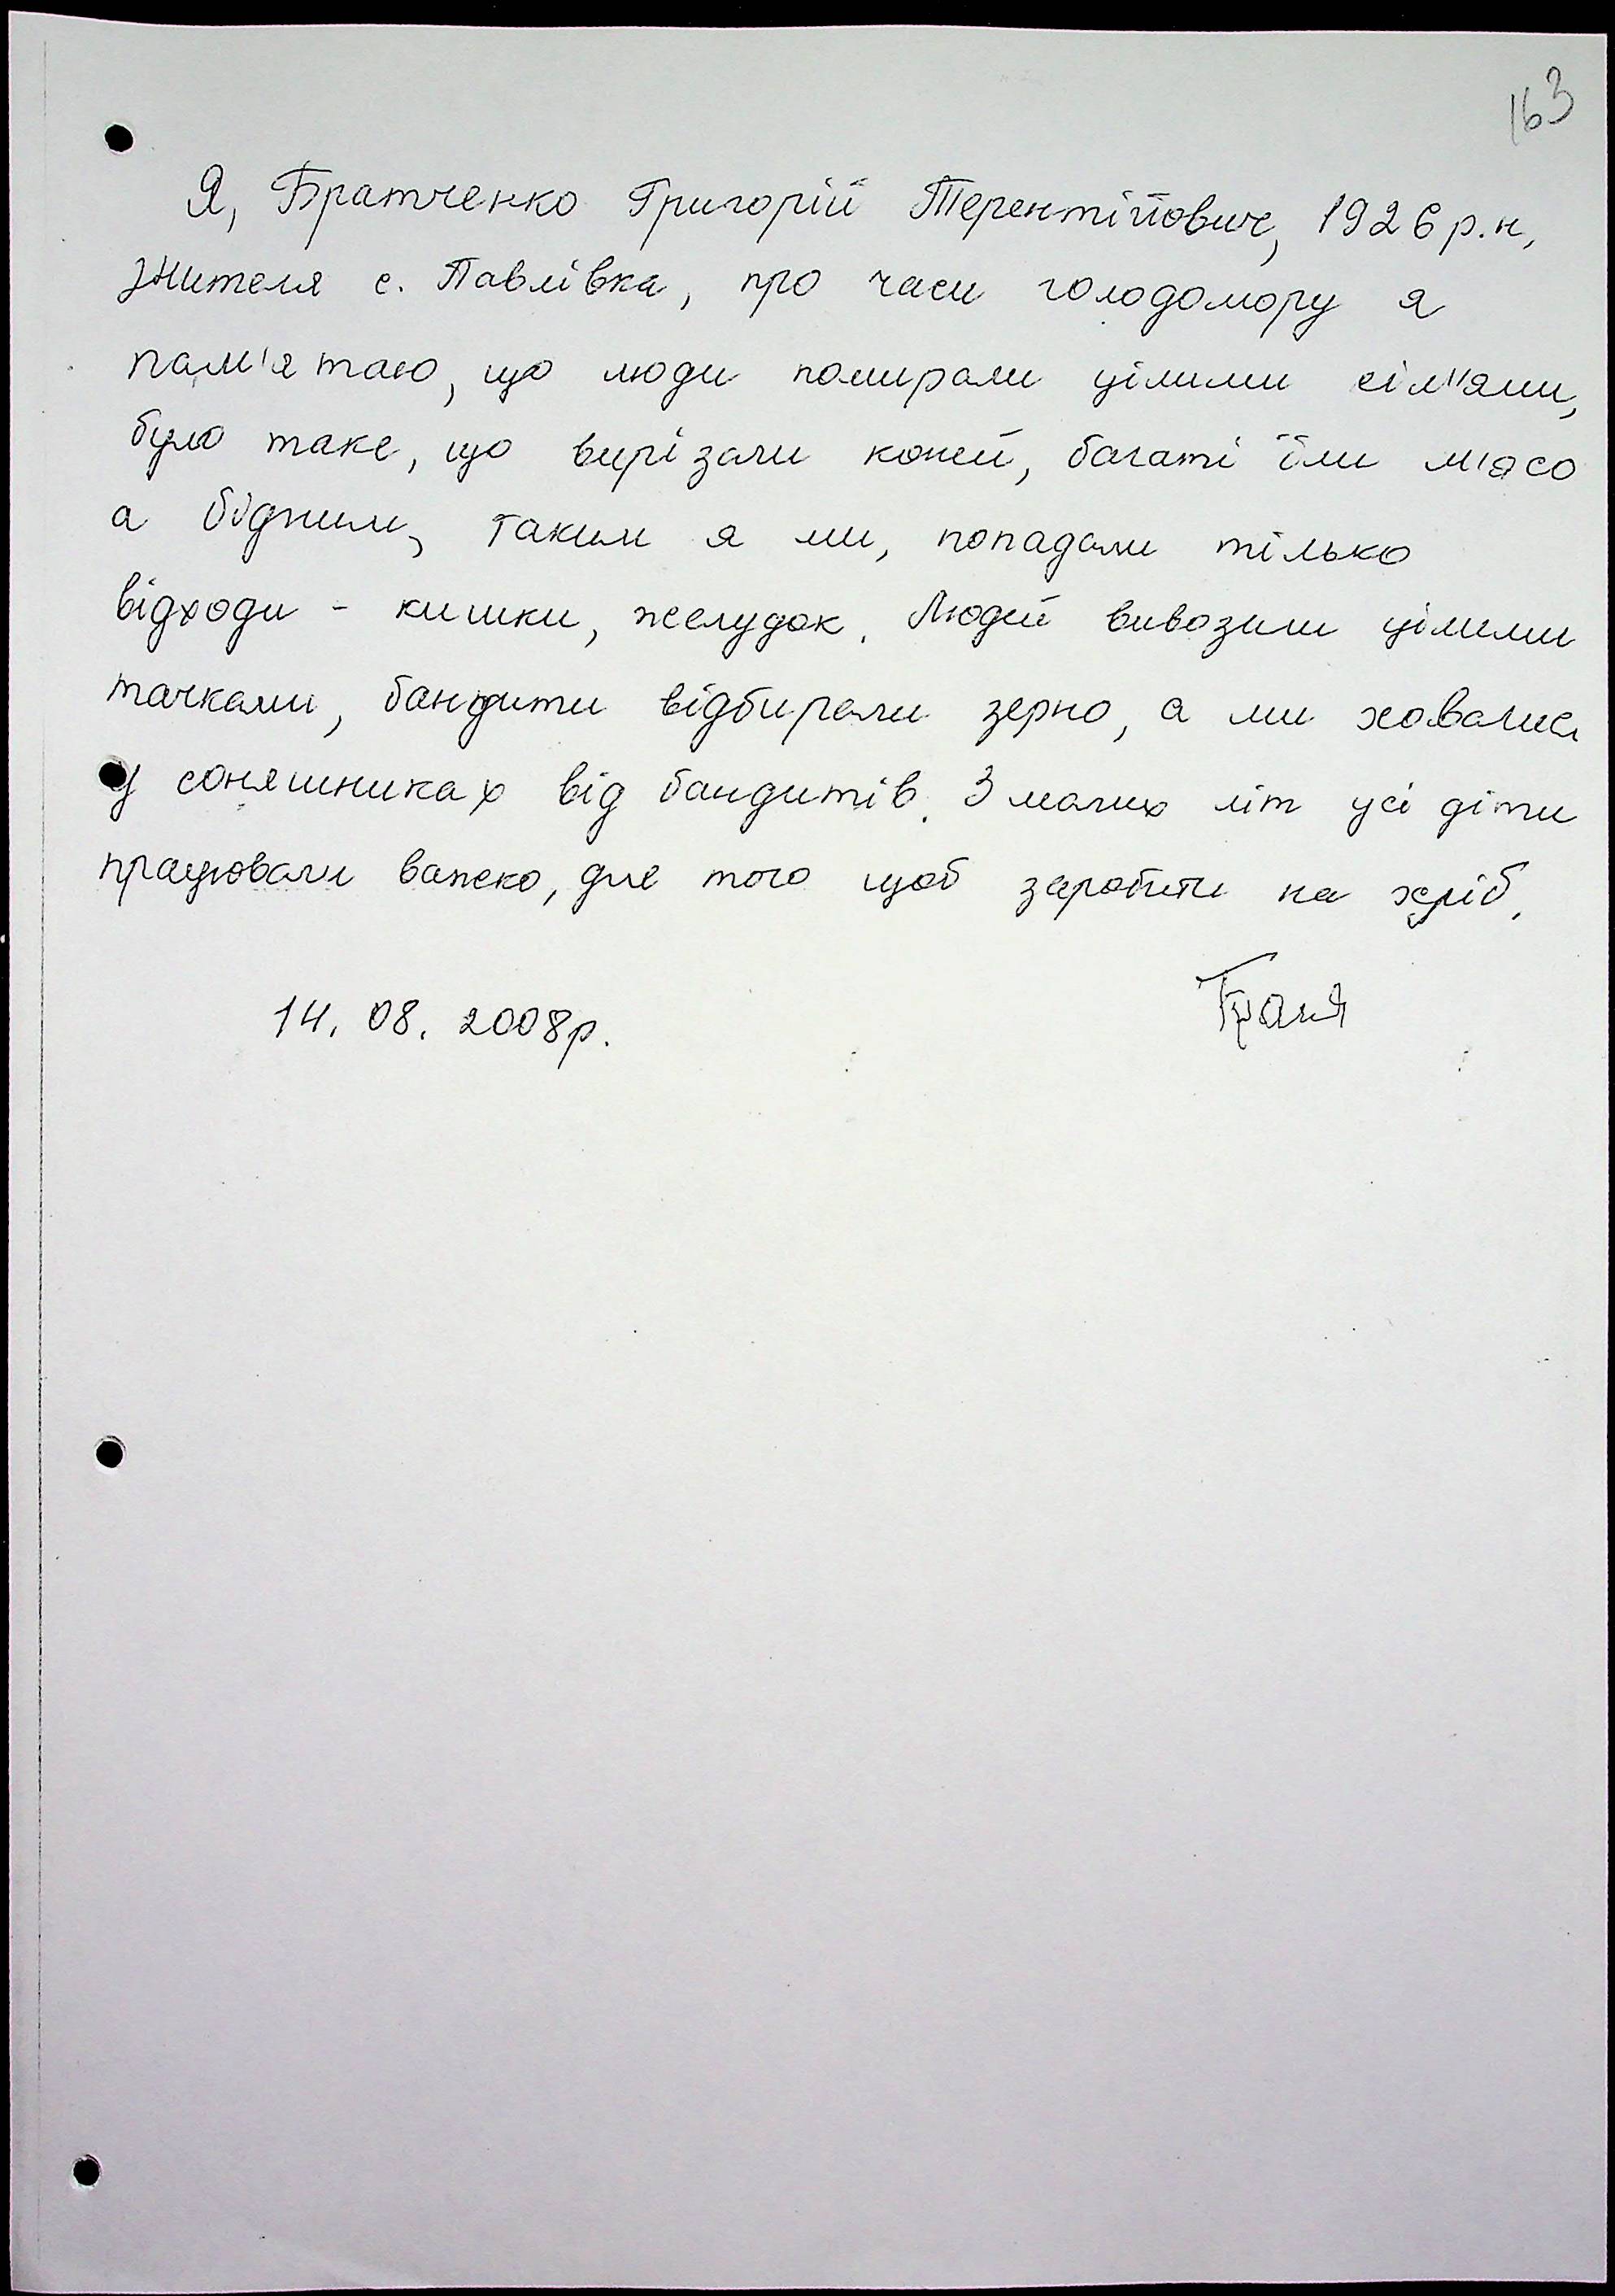 163
Я, Братченко Григорій Терентійович, 1926 р.н,
Жителя с. Павлівка, про часи голодомору я
пам'ятаю, що люди помирали цілими сім'ями,
було таке, що вирізали коней, багаті їли м'ясо
а бідним, таким я ми, попадали тілько
відходи - кишки, желудок. Людей вивозили цілими
тачками, бандити відбирали зерно, а ми ховалися
у соняшниках від бандитів. З малих літ усі діти
працювали важко, для того щоб заробити на хліб.
14. 08. 2008р.